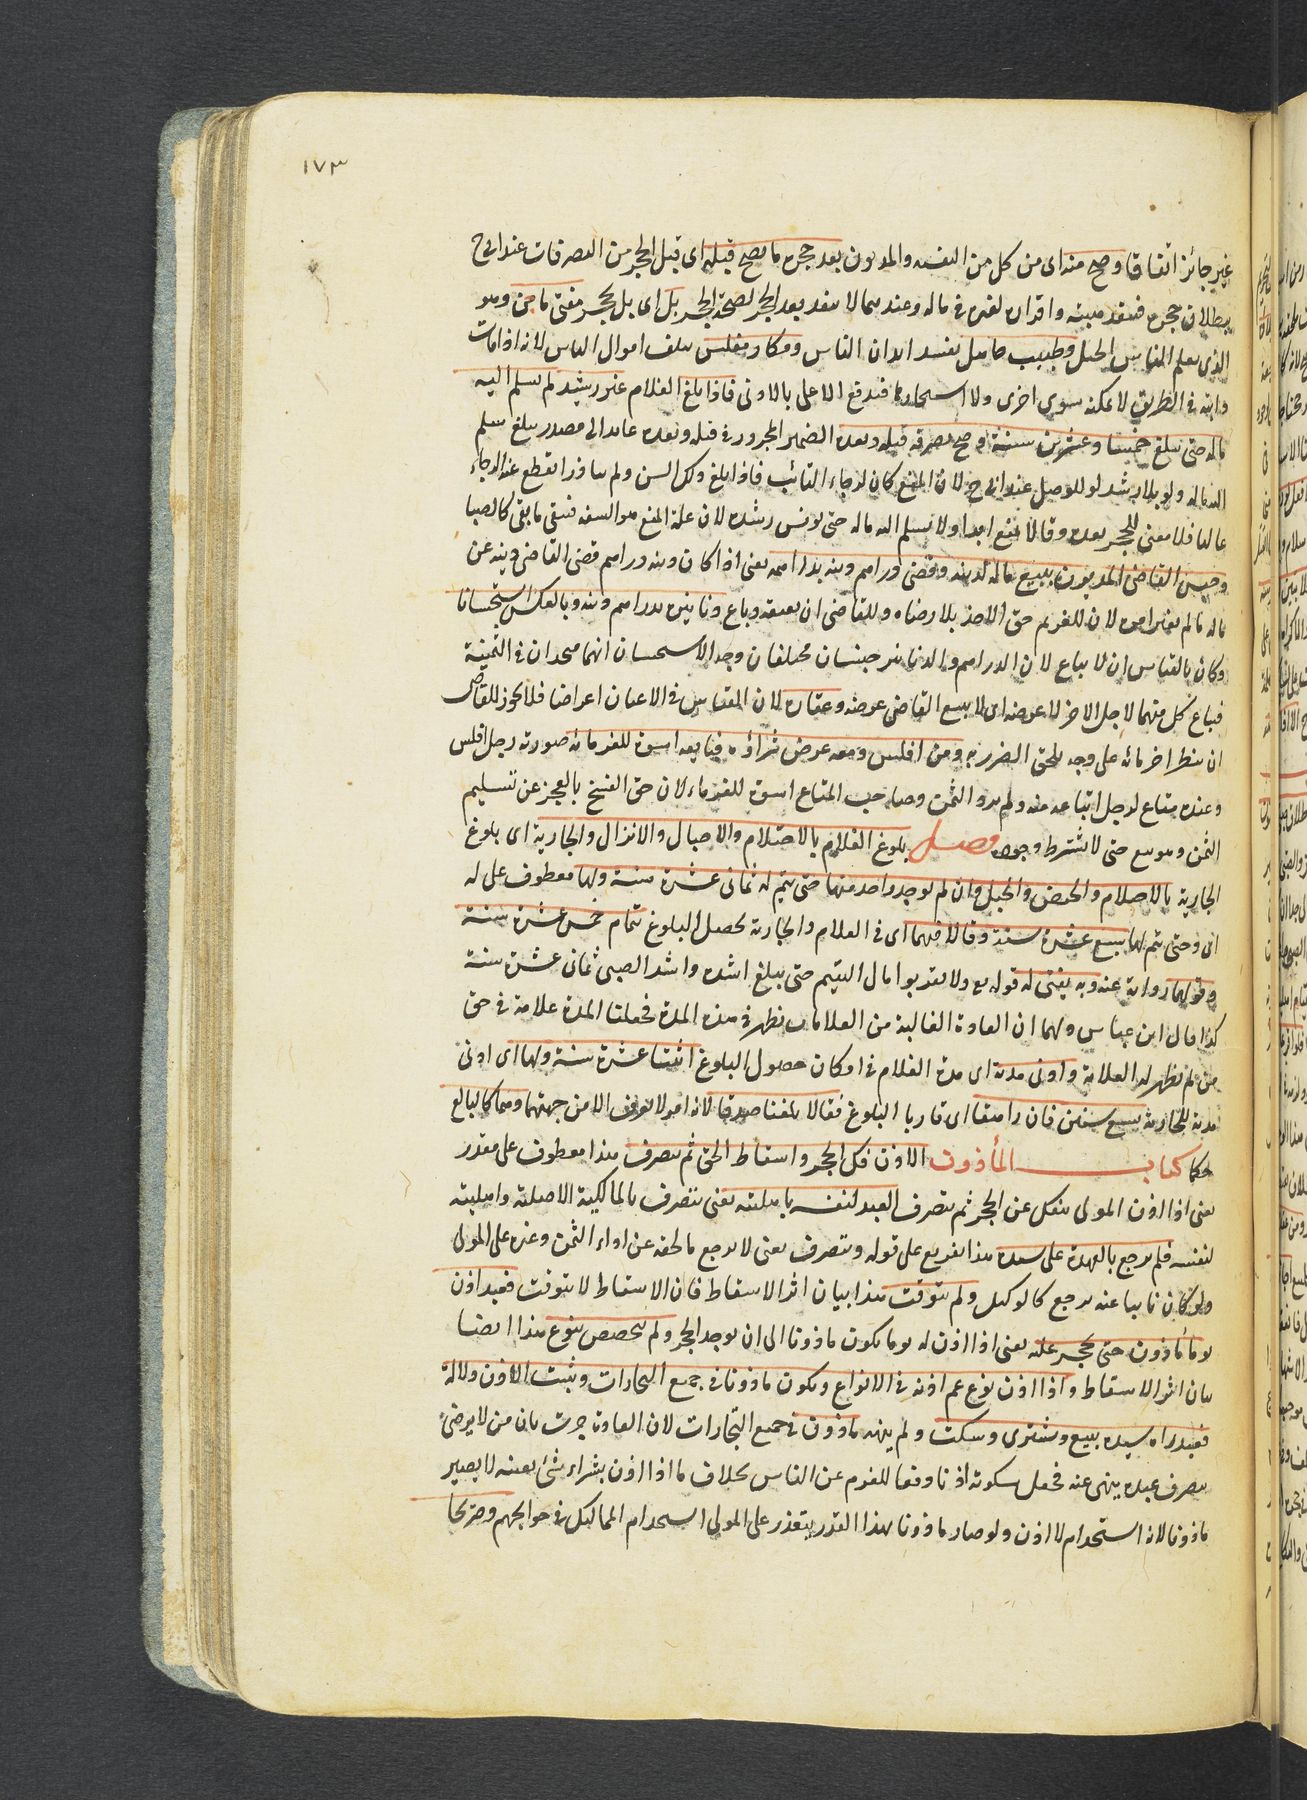 ١٧٣
غير جائز اتفاقا وصح منه اى من كل من السفيه والمديون بعد حجره ما يصح قبله اى قبل الحجر من التصرفات عند ابى ح
لبطلان حجره فينعقد هبته واقراره لغيره فى ماله وعندهما لا ينفذ بعد الحجر لصحة الحجر بل اى بل يحجر مفتى ماجن وهو
الذى يعلم الناس الحيل وطبيب جاهل يفسد ابدان الناس ومكار مفلس يتلف اموال الناس لانه اذا مات
دابته فى الطريق لا يمكنه سوى اخرى ولا استيجارها فيدفع الاعلى بالادنى فاذا بلغ الغلام غير رشيد لم يسلم اليه
ماله حتى يبلغ خمسا وعشرين سنة وصح تصرفه قبله وبعده الضمير المجرور فى قبله وبعده عائد الى مصدر يبلغ يسلم
اليه ماله ولو بلا رشد لو للوصل عند ابى ح لان المنع كان لرجاء التائب فاذا بلغ ذلك السن ولم ينافذ انقطع عنه الرجاء
غالبا فلا معنى للحجر بعده وقالا يمنع ابدا ولا يسلم اليه ماله حتى يونس رشده لان علة المنع هو السفه فيبقى ما بقى كالصبا
وحبس القاضى المديون ببيع ماله لدينه وقضى دراهم دينه بدراهمه يعنى اذا كان دينه دراهم قضى القاضى دينه عن
ماله ما لم يغير امره لان للغريم حق الاخذ بلا رضاه وللقاضى ان يعينه وباع دنانيره بدراهم دينه وبالعكس استحسانا
وكان بالقياس ان لا يباع لان الدراهم والدنانير جنسان مختلفان وجه الاستحسان انهما متحدان فى الثمنية
فيباع كل منهما لاجل الاخر لا عرضه اى لا يبيع القاضى عرضه وعقاره لان المقاصد فى الاعيان اعراضها فلا يجوز للقاضى
ان ينظر لغرمائه على وجه يلحق الضرر به ومن افلس ومعه عرض شراؤه فبايعه اسوة للغرمائه صورته رجل افلس
وعنده متاع لرجل ابتاعه منه ولم يرد الثمن وصاحب المتاع اسوة للغرماء لان حق الفسخ بالعجز عن تسليم
الثمن وهو بيع حتى لا يشترط وجوده فصل بلوغ الغلام بالاحتلام والاحبال والانزال والجارية اى بلوغ
الجارية بالاحتلام والحيض والحبل فان لم يوجد واحد منها حتى يتم له ثمانى عشرة سنة ولها معطوف على له
اى وحتى يتم لها سبع عشرة سنة وقالا فيهما اى فى الغلام والجارية يحصل البلوغ بتمام خمس عشرة سنة
وقولهما رواية عنه وبه يفتى له قوله تع ولا تقربوا مال اليتيم حتى يبلغ اشده واشد الصبى ثمانى عشرة سنة
كذا قال ابن عباس ولهما ان العادة الغالبة من العلامات تظهر فى هذه المدة فجعلنا المدة علامة فى حق
من لم يظهر له العلامة وادنى مدته اى مدة الغلام فى امكان حصول البلوغ اثنتا عشرة سنة ولها اى ادنى
مدته للجارية تسع سنين فان راهقا اى قاربا البلوغ فقالا بلغنا صدقا لانه امر لا يعرف الا من جهتهما وهما كالبالغ
حكما كتاب المأذون الاذن فك الحجر واسقاط الحق ثم يتصرف هذا معطوف على مقدر
يعنى اذا اذن المولى ينفك عن الحجر ثم يتصرف العبد لنفسه باهليته يعنى يتصرف بالمالكية الاصلية واهليته
لنفسه فلم يرجع بالعهدة على سيده هذا تفريع على قوله ويتصرف يعنى لا يرجع ما لحقه عن اداء الثمن وغيره على المولى
ولو كان نائبا عنه يرجع كالوكيل ولم يتوقت هذا بيان اثر الاسقاط فان الاسقاط لا يتوقت فعبد اذن
يوما مأذون حتى يحجر عليه يعنى اذا اذن له يوما يكون مأذونا الى ان يوجد الحجر ولم يتخصص بنوع هذا ايضا
بيان اثر الاسقاط واذا اذن بنوع عم اذنه فى الانواع ويكون مأذونا فى جميع التجارات ويثبت الاذن دلالة
فعبد راه سيده يبيع ويشترى وسكت ولم ينهه مأذون فى جميع التجارات لان العادة جرت بان من لا يرضى
بتصرف عبده ينهى عنه فجعل سكوته اذنا دفعا للغرم عن الناس بخلاف ما اذا اذن بشراء شئ بعينه لا يصير
مأذونا لانه استخدام لا اذن ولو صار مأذونا بهذا القدر يتعذر على المولى استخدام المماليك فى حوايجهم وصريحا